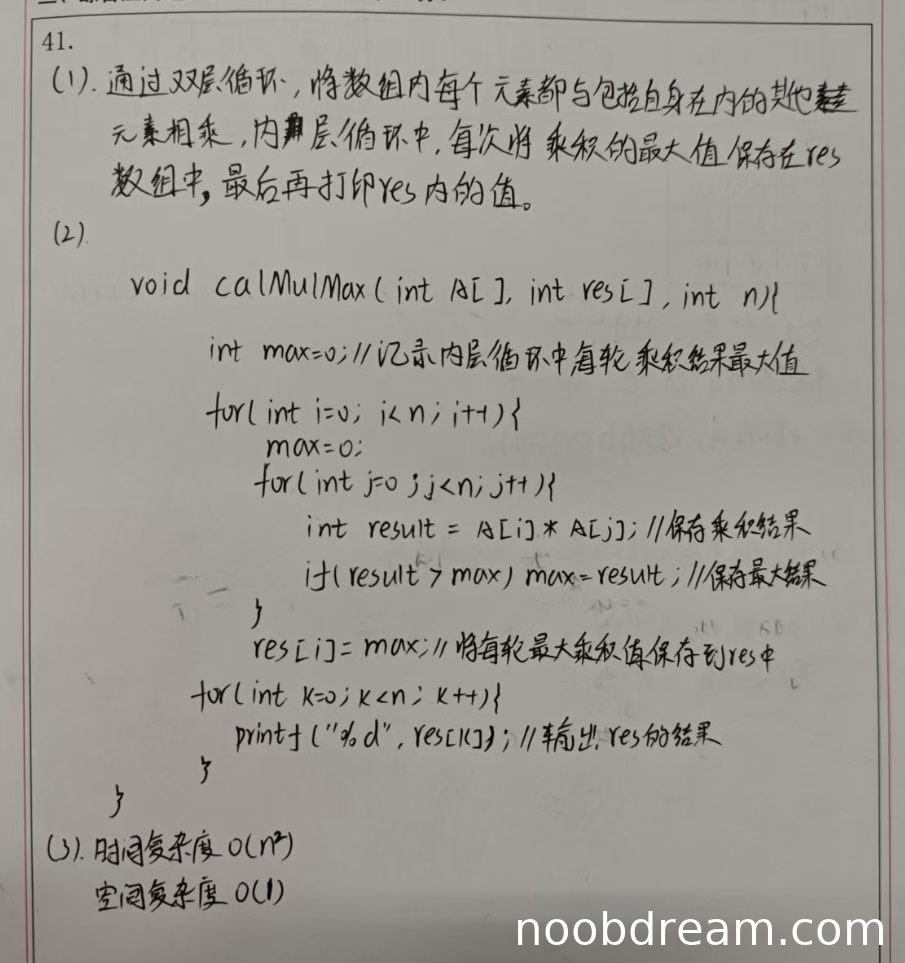 41.
(1). 通过双层循环，将数组内每个元素都与包括自身在内的其他
元素相乘，内层循环中，每次将乘积的最大值保存在res
数组中，最后再打印res内的值。
(2).
void calMulMax(int A[], int res[], int n){
int max=0;//记录内层循环中每轮乘积结果最大值
for(int i=0; i<n; i++){
max=0;
for(int j=0;j<n;j++){
int result = A[i]*A[j];//保存乘积结果
if(result > max) max=result;//保存最大结果
}
res[i]=max;//将每轮最大乘积值保存到res中
for(int k=0;k<n; k++){
printf("%d", res[k]);//输出res的结果
}
}
(3). 时间复杂度 O(n²)
空间复杂度 O(1)
noobdream.com